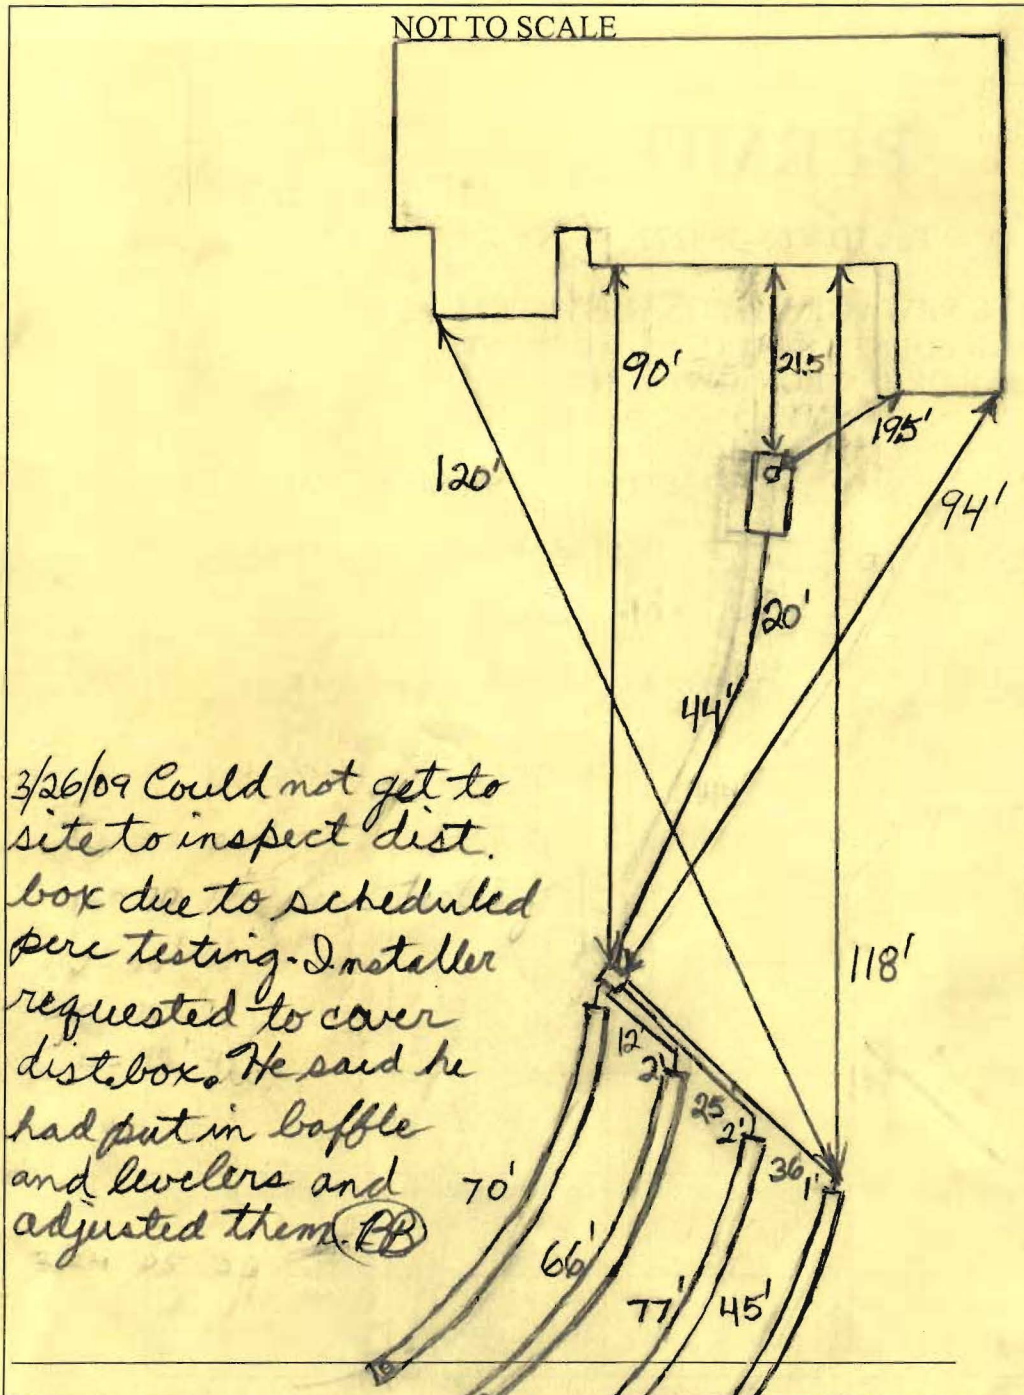 NOT TO SCALE
90'
21.5'
19.5'
120'
94'
20'
44'
3/26/09 Could not get to
site to inspect dist.
box due to scheduled
perc testing. Installer
requested to cover
dist. box. He said he
had put in baffle
and levelers and
adjusted them. BB
118'
12'
2'
25'
2'
36'
1'
70'
66'
77'
45'